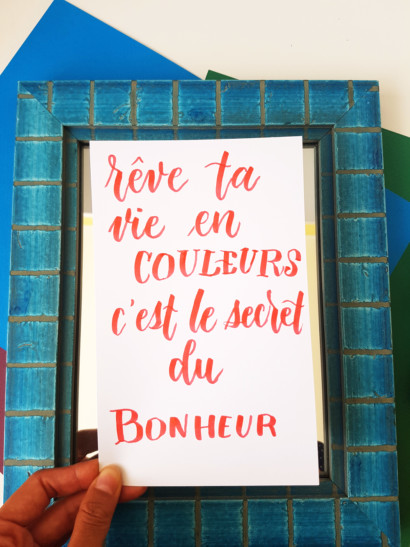 rêve ta
vie en
COULEURS
c'est le secret
du
BONHEUR